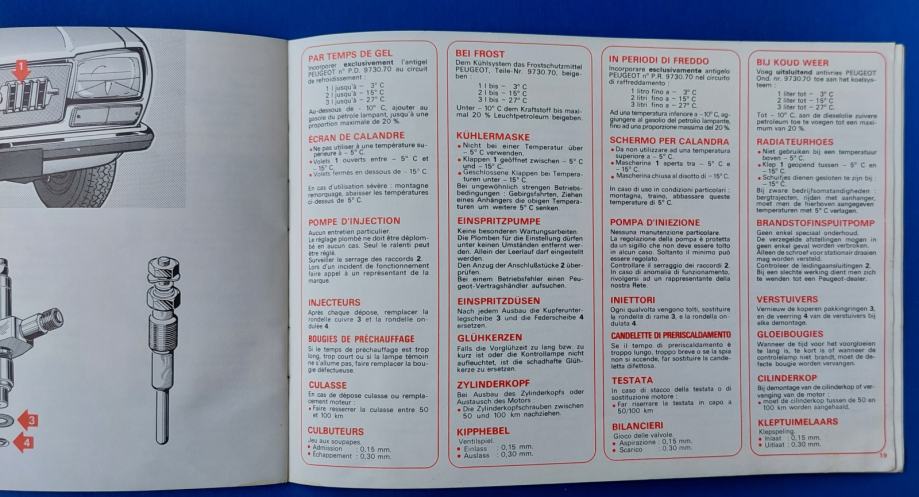 1
3
4
PAR TEMPS DE GEL
Incorporer exclusivement l'antigel
PEUGEOT n° P.D. 9730.70 au circuit
de refroidissement :
1 l jusqu'à - 3° C
2 l jusqu'à - 15° C
3 l jusqu'à - 27° C.
Au-dessous de - 10° C, ajouter au
gasoile du pétrole lampant, jusqu'à une
proportion maximale de 20 %.
ÉCRAN DE CALANDRE
• Ne pas utiliser à une température su-
périeure à - 5° C.
• Volets 1 ouverts entre - 5° C et
- 15° C.
• Volets fermés en dessous de - 15° C.
En cas d'utilisation sévère : montagne
remorquage, abaisser les températures
ci-dessus de 5° C.
POMPE D'INJECTION
Aucun entretien particulier.
Le réglage plombé ne doit être déplom-
bé en aucun cas. Seul le ralenti peut
être réglé.
Surveiller le serrage des raccords 2.
Lors d'un incident de fonctionnement
faire appel à un représentant de la
marque.
INJECTEURS
Après chaque dépose, remplacer la
rondelle cuivre 3 et la rondelle on-
dulée 4.
BOUGIES DE PRÉCHAUFFAGE
Si le temps de préchauffage est trop
long, trop court ou si la lampe témoin
ne s'allume pas, faire remplacer la bou-
gie défectueuse.
CULASSE
En cas de dépose culasse ou rempla-
cement moteur :
• Faire resserrer la culasse entre 50
et 100 km
CULBUTEURS
Jeu aux soupapes.
• Admission : 0,15 mm.
• Echappement : 0,30 mm.
BEI FROST
Dem Kühlsystem das Frostschutzmittel
PEUGEOT, Teile-Nr. 9730.70, beige-
ben :
1 l bis - 3° C
2 l bis - 15° C
3 l bis - 27° C.
Unter - 10° C dem Kraftstoff bis maxi-
mal 20 % Leuchtpetroleum beigeben.
KÜHLERMASKE
• Nicht bei einer Temperatur über
- 5° C verwenden.
• Klappen 1 geöffnet zwischen - 5° C
und - 15° C.
• Geschlossene Klappen bei Tempera-
turen unter - 15° C.
Bei ungewöhnlich strengen Betriebs-
bedingungen : Gebirgsfahrten, Ziehen
eines Anhängers die obigen Tempera-
turen um weitere 5° C senken.
EINSPRITZPUMPE
Keine besonderen Wartungsarbeiten.
Die Plomben für die Einstellung dürfen
unter keinen Umständen entfernt wer-
den. Allein der Leerlauf darf eingestellt
werden.
Den Anzug der Anschlußstücke 2 über-
prüfen.
Bei einem Betriebsfehler einen Peu-
geot-Vertragshändler aufsuchen.
EINSPRITZDÜSEN
Nach jedem Ausbau die Kupferunter-
legscheibe 3 und die Federscheibe 4
ersetzen.
GLÜHKERZEN
Falls die Vorglühzeit zu lang bzw. zu
kurz ist oder die Kontrollampe nicht
aufleuchtet, ist die schadhafte Glüh-
kerze zu ersetzen.
ZYLINDERKOPF
Bei Ausbau des Zylinderkopfs oder
Austausch des Motors
• Die Zylinderkopfschrauben zwischen
50 und 100 km nachziehen.
KIPPHEBEL
Ventilspiel.
• Einlass : 0,15 mm.
• Auslass : 0,30 mm.
IN PERIODI DI FREDDO
Incorporare esclusivamente antigelo
PEUGEOT n° P.R. 9730.70 nel circuito
di raffreddamento :
1 litro fino a - 3° C
2 litri fino a - 15° C
3 litri fino a - 27° C.
Ad una temperatura inferiore a - 10° C, ag-
giungere al gasolio del petrolio lampante,
fino ad una proporzione massima del 20 %.
SCHERMO PER CALANDRA
• Da non utilizzare ad una temperatura
superiore a - 5° C.
• Mascherina 1 aperta tra - 5° C e
- 15° C.
• Mascherina chiusa al disotto di - 15° C.
In caso di uso in condizioni particolari :
montagna, traino, abbassare queste
temperature di 5° C.
POMPA D'INIEZIONE
Nessuna manutenzione particolare.
La regolazione della pompa è protetta
da un sigillo che non deve essere tolto
in alcun caso. Soltanto il minimo può
essere regolato.
Controllare il serraggio dei raccordi 2.
In caso di anomalia di funzionamento,
rivolgersi ad un rappresentante della
nostra Rete.
INIETTORI
Ogni qualvolta vengono tolti, sostituire
la rondella di rame 3, e la rondella on-
dulata 4.
CANDELETTE DI PRERISCALDAMENTO
Se il tempo di preriscaldamento è
troppo lungo, troppo breve o se la spia
non si accende, far sostituire la cande-
letta difettosa.
TESTATA
In caso di stacco della testata o di
sostituzione motore :
• Far riserrare la testata in capo a
50/100 km
BILANCIERI
Gioco delle valvole.
• Aspirazione : 0,15 mm.
• Scarico : 0,30 mm.
BIJ KOUD WEER
Voeg uitsluitend antivries PEUGEOT
Ond. nr. 9730.70 toe aan het koelsys-
teem :
1 liter tot - 3° C
2 liter tot - 15° C
3 liter tot - 27° C.
Tot - 10° C, aan de dieselolie zuivere
petroleum toe te voegen tot een maxi-
mum van 20 %.
RADIATEURHOES
• Niet gebruiken bij een temperatuur
boven - 5° C.
• Klep 1 geopend tussen - 5° C en
- 15° C.
• Schuifjes dienen gesloten te zijn bij :
- 15° C.
Bij zware bedrijfsomstandigheden :
bergtrajecten, rijden met aanhanger,
moet men de hierboven aangegeven
temperaturen met 5° C verlagen.
BRANDSTOFINSPUITPOMP
Geen enkel speciaal onderhoud.
De verzegelde afstellingen mogen in
geen enkel geval worden verbroken.
Alleen de schroef voor stationair draaien
mag worden versteld.
Controleer de leidingaansluitingen 2.
Bij een slechte werking dient men zich
te wenden tot een Peugeot-dealer.
VERSTUIVERS
Vernieuw de koperen pakkingringen 3,
en de veerring 4 van de verstuivers bij
elke demontage.
GLOEIBOUGIES
Wanneer de tijd voor het voorgloeien
te lang is, te kort is of wanneer de
controlelamp niet brandt, moet de de-
fecte bougie worden vervangen.
CILINDERKOP
Bij demontage van de cilinderkop of ver-
vanging van de motor :
• moet de cilinderkop tussen de 50 en
100 km worden aangehaald.
KLEPTUIMELAARS
Klepspeling.
• Inlaat : 0,15 mm.
• Uitlaat : 0,30 mm.
19